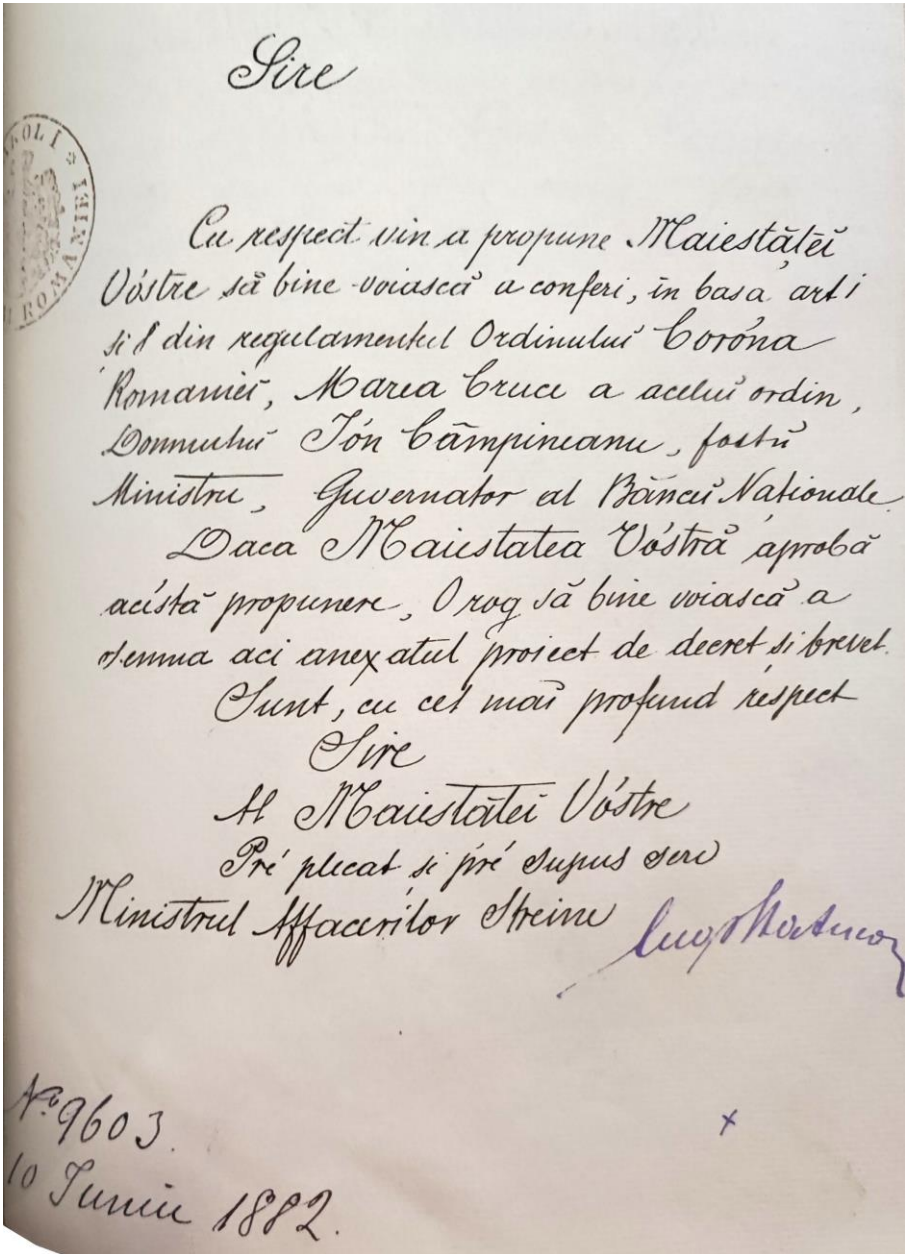 Sire
CAROL I * ROMANIEI
Cu respect vin a propune Maiestăței
Vóstre să bine-voiască a conferi, în basa art 1
si 8 din regulamentul Ordinului Coróna
Romaniei, Marea Cruce a acelui ordin,
Domnului Ión Câmpineanu, fostŭ
Ministru, Guvernator al Băncei Naționale.
Daca Maiestatea Vóstră aprobă
acéstă propunere, O rog să bine voiască a
semna aci anexatul proiect de decret si brevet.
Sunt, cu cel mai profund respect
Sire
Al Maiestăței Vóstre
Pré plecat si pré supus serv
Ministrul Affacerilor Streine
No 9603.
10 Iuniu 1882.